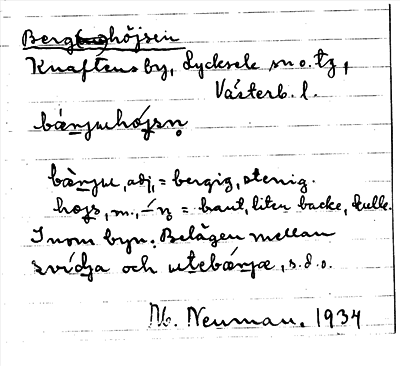 Berghöjsen
Knaftens by, Lycksele sn o. tg,
Västerb. l.
bæ̀njuehójsn̥
bæ̀njue, adj, = bergig, stenig.
hojs, m., = bant, liten backe, kulle.
Inom byn. Belägen mellan
och s.d.o.
Neuman. 1934